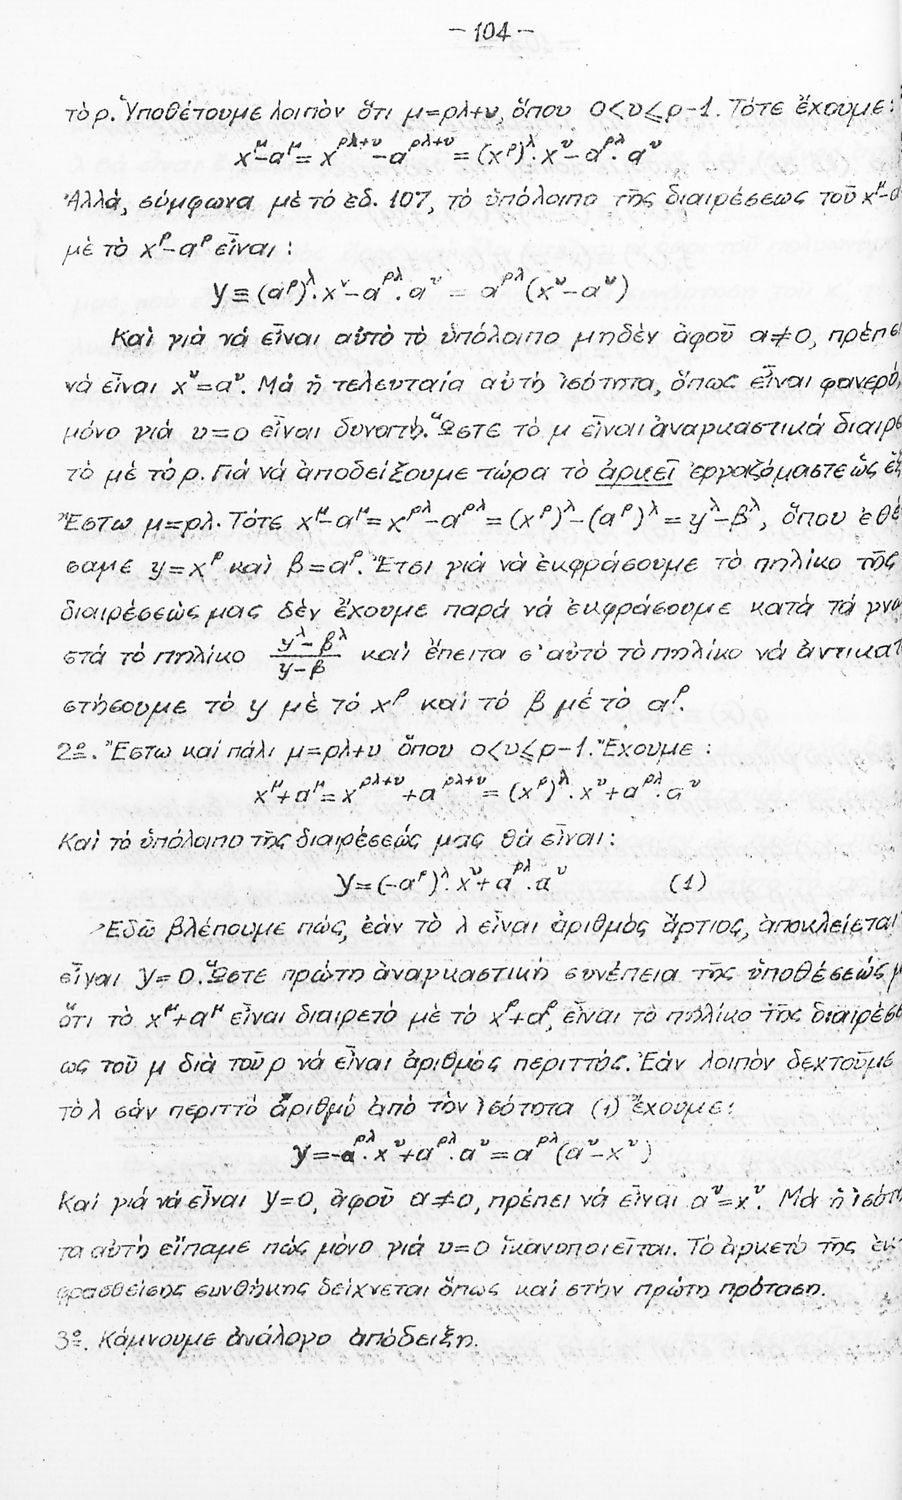 - 104 -
τὸ ρ. Ὑποθέτουμε λοιπὸν ὅτι μ=ρλ+υ, ὅπου 0<υ≤ρ-1. Τότε ἔχουμε:
x^μ-α^μ = x^{ρλ+υ}-α^{ρλ+υ} = (x^ρ)^λ·x^υ-α^{ρλ}·α^υ
Ἀλλά, σύμφωνα μὲ τὸ ἐδ. 107, τὸ ὑπόλοιπο τῆς διαιρέσεως τοῦ x^μ-α
μὲ τὸ x^ρ-α^ρ εἶναι:
Y≡(α^ρ)^λ·x^υ-α^{ρλ}·α^υ = α^{ρλ}(x^υ-α^υ)
Καὶ γιὰ νά εἶναι αὐτὸ τὸ ὑπόλοιπο μηδὲν ἀφοῦ α≠0, πρέπει
νὰ εἶναι x^υ=α^υ. Μὰ ἡ τελευταία αὐτὴ ἰσότητα, ὅπως εἶναι φανερό,
μόνο γιὰ υ=0 εἶναι δυνατή. Ὥστε τὸ μ εἶναι ἀναγκαστικά διαιρε
τὸ μὲ τὸ ρ. Γιὰ νὰ ἀποδείξουμε τώρα τὸ ἀρκεῖ ἐργαζόμαστε ὡς ἑξ
Ἔστω μ=ρλ. Τότε x^μ-α^μ=x^{ρλ}-α^{ρλ}=(x^ρ)^λ-(α^ρ)^λ=y^λ-β^λ, ὅπου ἐθέ
σαμε y=x^ρ καὶ β=α^ρ. Ἔτσι γιὰ νὰ ἐκφράσουμε τὸ πηλίκο τῆς
διαιρέσεώς μας δὲν ἔχουμε παρά νά ἐκφράσουμε κατὰ τὰ γνω
στά τὸ πηλίκο (y^λ-β^λ)/(y-β) καὶ ἔπειτα σ' αὐτὸ τὸ πηλίκο νὰ ἀντικατ
στήσουμε τὸ y μὲ τὸ x^ρ καὶ τὸ β μὲ τὸ α^ρ.
2º. Ἔστω καὶ πάλι μ=ρλ+υ ὅπου 0<υ≤ρ-1. Ἔχουμε:
x^μ+α^μ=x^{ρλ+υ}+α^{ρλ+υ}=(x^ρ)^λ·x^υ+α^{ρλ}·α^υ
Καὶ τὸ ὑπόλοιπο τῆς διαιρέσεώς μας θὰ εἶναι:
Y=(-α^ρ)^λ·x^υ+α^{ρλ}·α^υ (1)
Ἐδῶ βλέπουμε πώς, ἐὰν τὸ λ εἶναι ἀριθμὸς ἄρτιος, ἀποκλείεται
εἶναι Y=0. Ὥστε πρώτη ἀναγκαστικὴ συνέπεια τῆς ὑποθέσεώς μ
ὅτι τὸ x^μ+α^μ εἶναι διαιρετὸ μὲ τὸ x^ρ+α^ρ, εἶναι τὸ πηλίκο τῆς διαιρέσε
ως τοῦ μ διὰ τοῦ ρ νὰ εἶναι ἀριθμὸς περιττός. Ἐὰν λοιπὸν δεχτοῦμε
τὸ λ σάν περιττὸ ἀριθμό ἀπὸ τὸν ἰσότητα (1) ἔχουμε:
Y=-α^{ρλ}·x^υ+α^{ρλ}·α^υ=α^{ρλ}(α^υ-x^υ)
Καὶ γιά νὰ εἶναι Y=0, ἀφοῦ α≠0, πρέπει νὰ εἶναι α^υ=x^υ. Μὰ ἡ ἰσότη
τα αὐτὴ εἴπαμε πὼς μόνο γιὰ υ=0 ἱκανοποιεῖται. Τὸ ἀρκετὸ τῆς ἐκ-
φρασθείσης συνθήκης δείχνεται ὅπως καὶ στὴν πρώτη πρόταση.
3º. Κάμνουμε ἀνάλογο ἀπόδειξη.